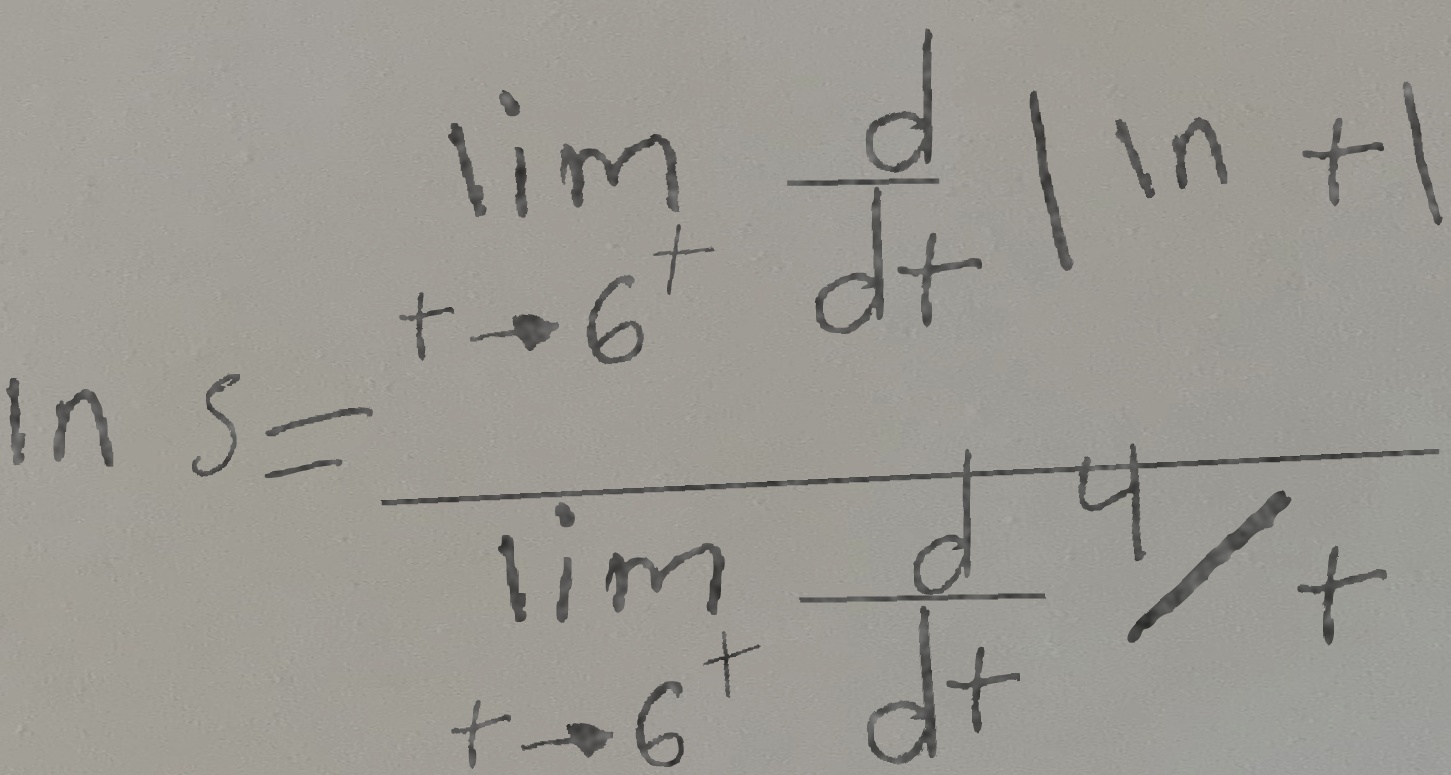 ln s = \frac{\lim_{t \to 6^+} \frac{d}{dt} |\ln t|}{\lim_{t \to 6^+} \frac{d}{dt} 4/t}